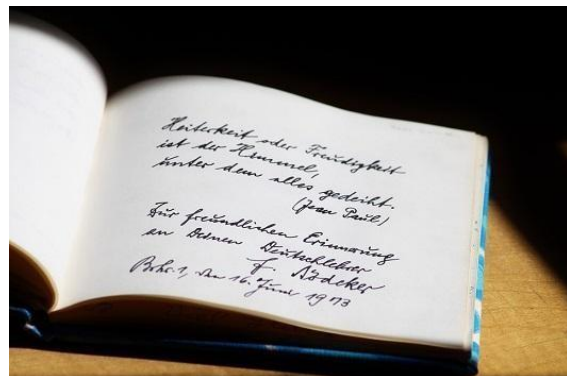 Heiterkeit oder Freudigkeit
ist der Himmel,
unter dem alles gedeiht.
(Jean Paul)
Zur freundlichen Erinnerung
an Deinen Deutschlehrer
F. Rödeker
den 16. Juni 1973